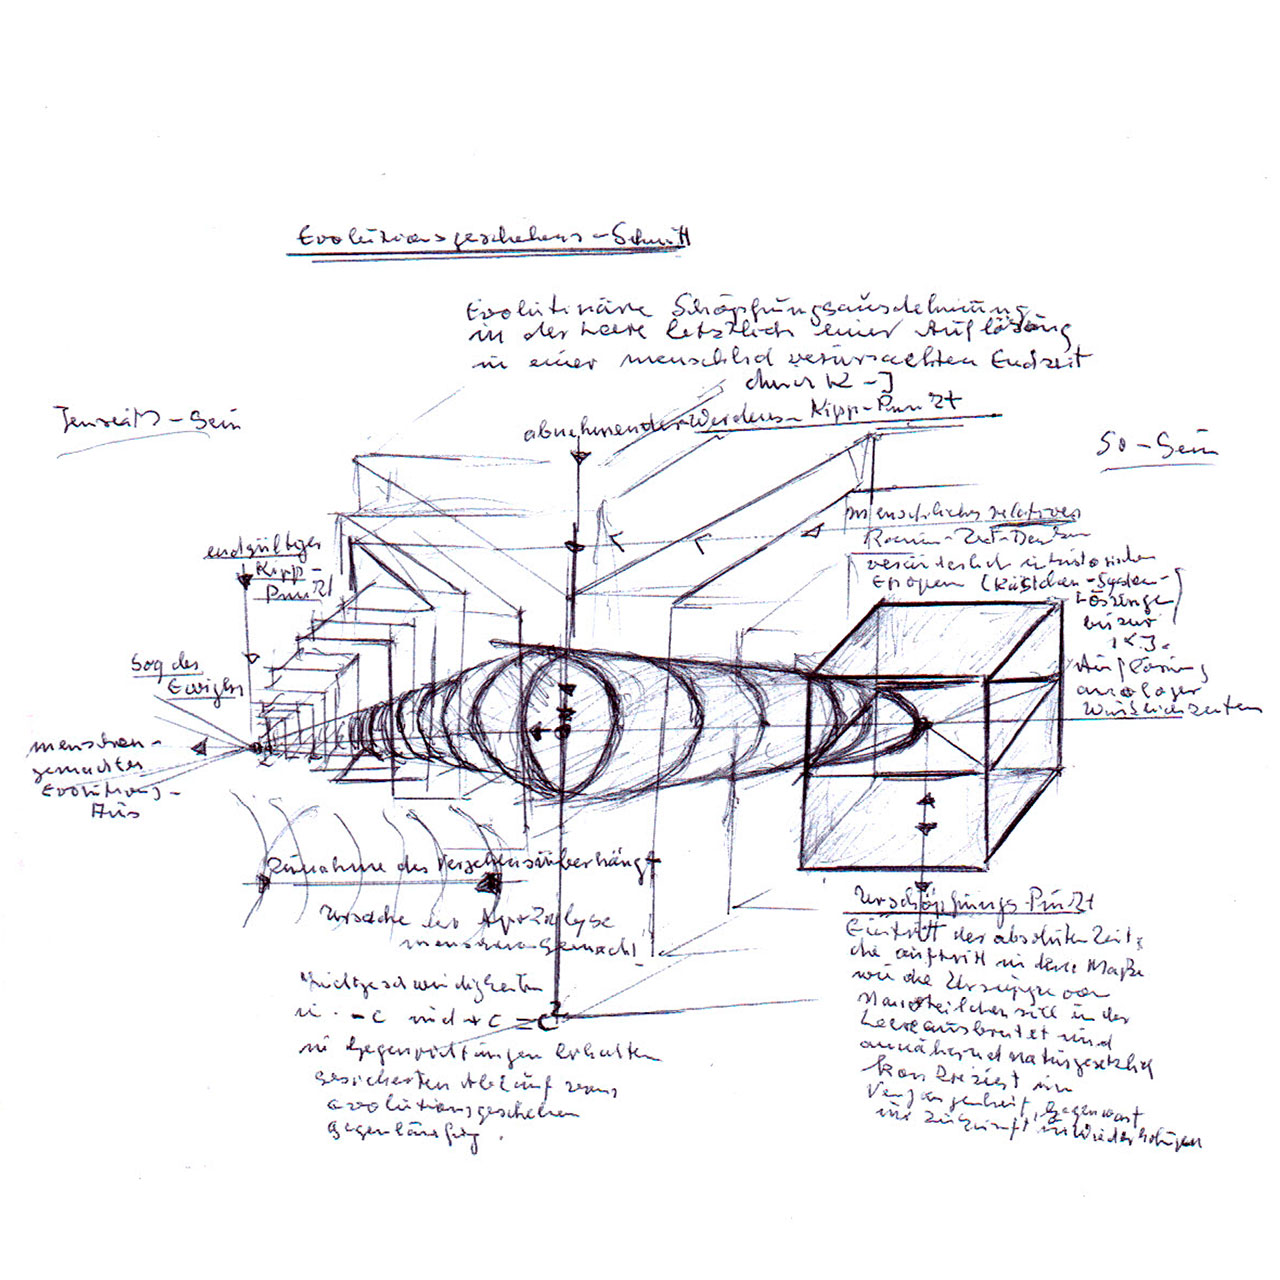 Evolutionsgeschehens-Schnitt
Evolutionäre Schöpfungsausdehnung
in der Leere letztlich einer Auflösung
in einer menschlich verursachten Endzeit
durch K-I
abnehmender Werdens-Kipp-Punkt
Jenseits-Sein
So-Sein
menschliches relatives
Raum-Zeit-Denken
veränderlich in historischen
Epochen (Kästchen-System-
Lösungen
bis zur
K.I.
Auflösung
analoger
Wirklichkeiten
endgültiger
Kipp-
Punkt
Sog des
Ewigen
menschen-
gemachtes
Evolutions-
Aus
Zunahme des Vergehensüberhangs
Ursache der Apokalypse
menschen gemacht!
Lichtgeschwindigkeiten
in -c und +c = c²
in Gegenrichtungen erhalten
gesicherten Ablauf vom
evolutionsgeschehen
gegenläufig.
Urschöpfungs-Punkt
Eintritt der absoluten Zeit,
die auftritt in dem Maße
wie die Ursuppe von
Nanoteilchen sich in der
Leere ausbreitet und
annähernd naturgesetzlich
konkreziert in
Vergangenheit, Gegenwart
und Zukunft in Wiederholungen